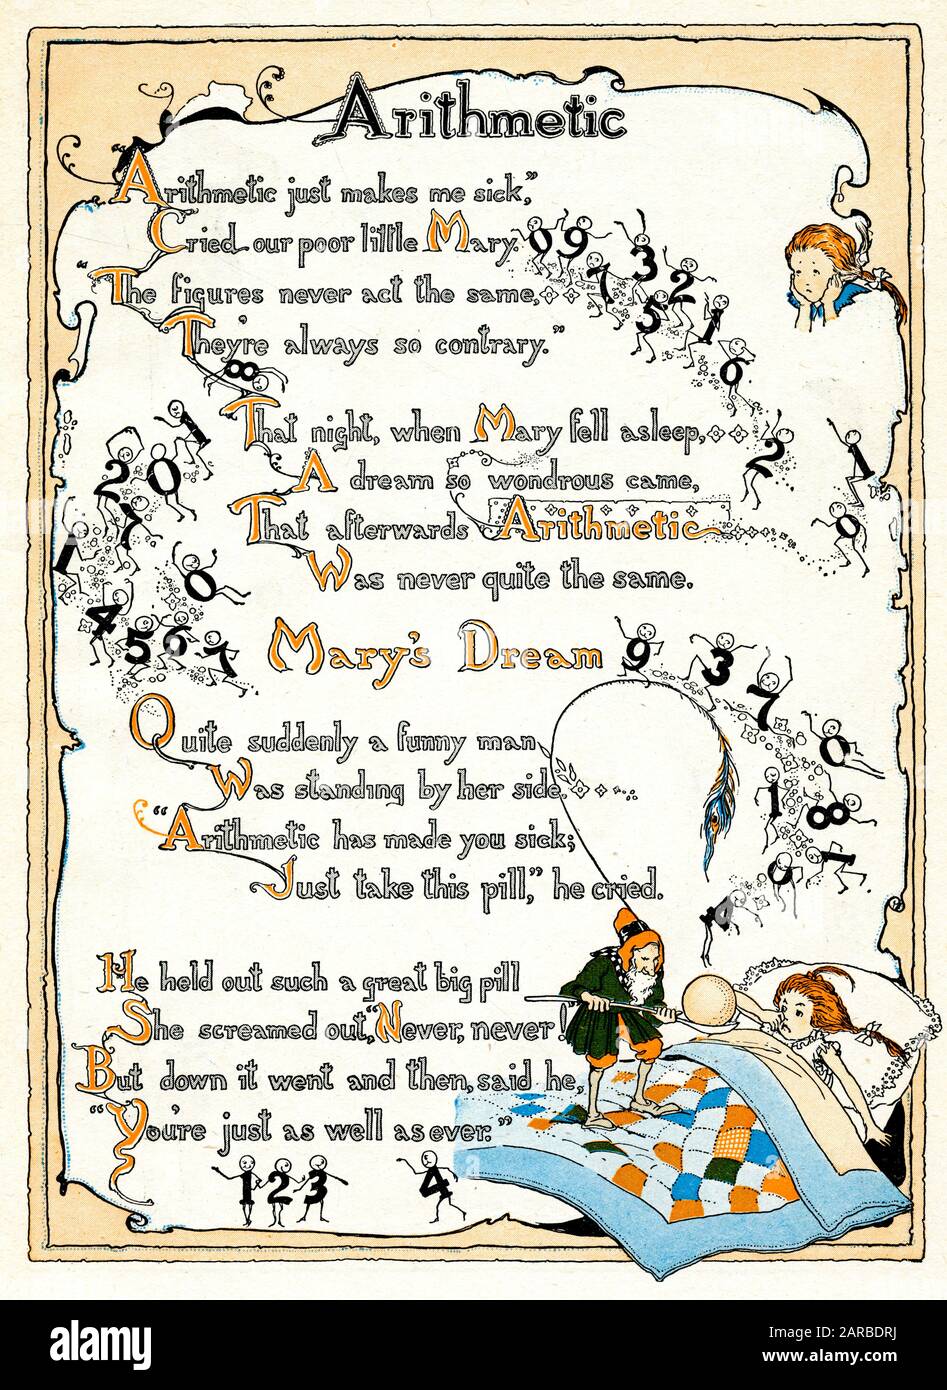 Arithmetic
Arithmetic just makes me sick,"
Cried our poor little Mary.
"The figures never act the same,
They're always so contrary."
That night, when Mary fell asleep,
A dream so wondrous came,
That afterwards Arithmetic
Was never quite the same.
Mary's Dream
Quite suddenly a funny man
Was standing by her side.
"Arithmetic has made you sick;
Just take this pill," he cried.
He held out such a great big pill
She screamed out, "Never, never!
But down it went and then, said he,
"You're just as well as ever."
1 2 3 4
alamy
Image ID: 2ARBDRJ
www.alamy.com